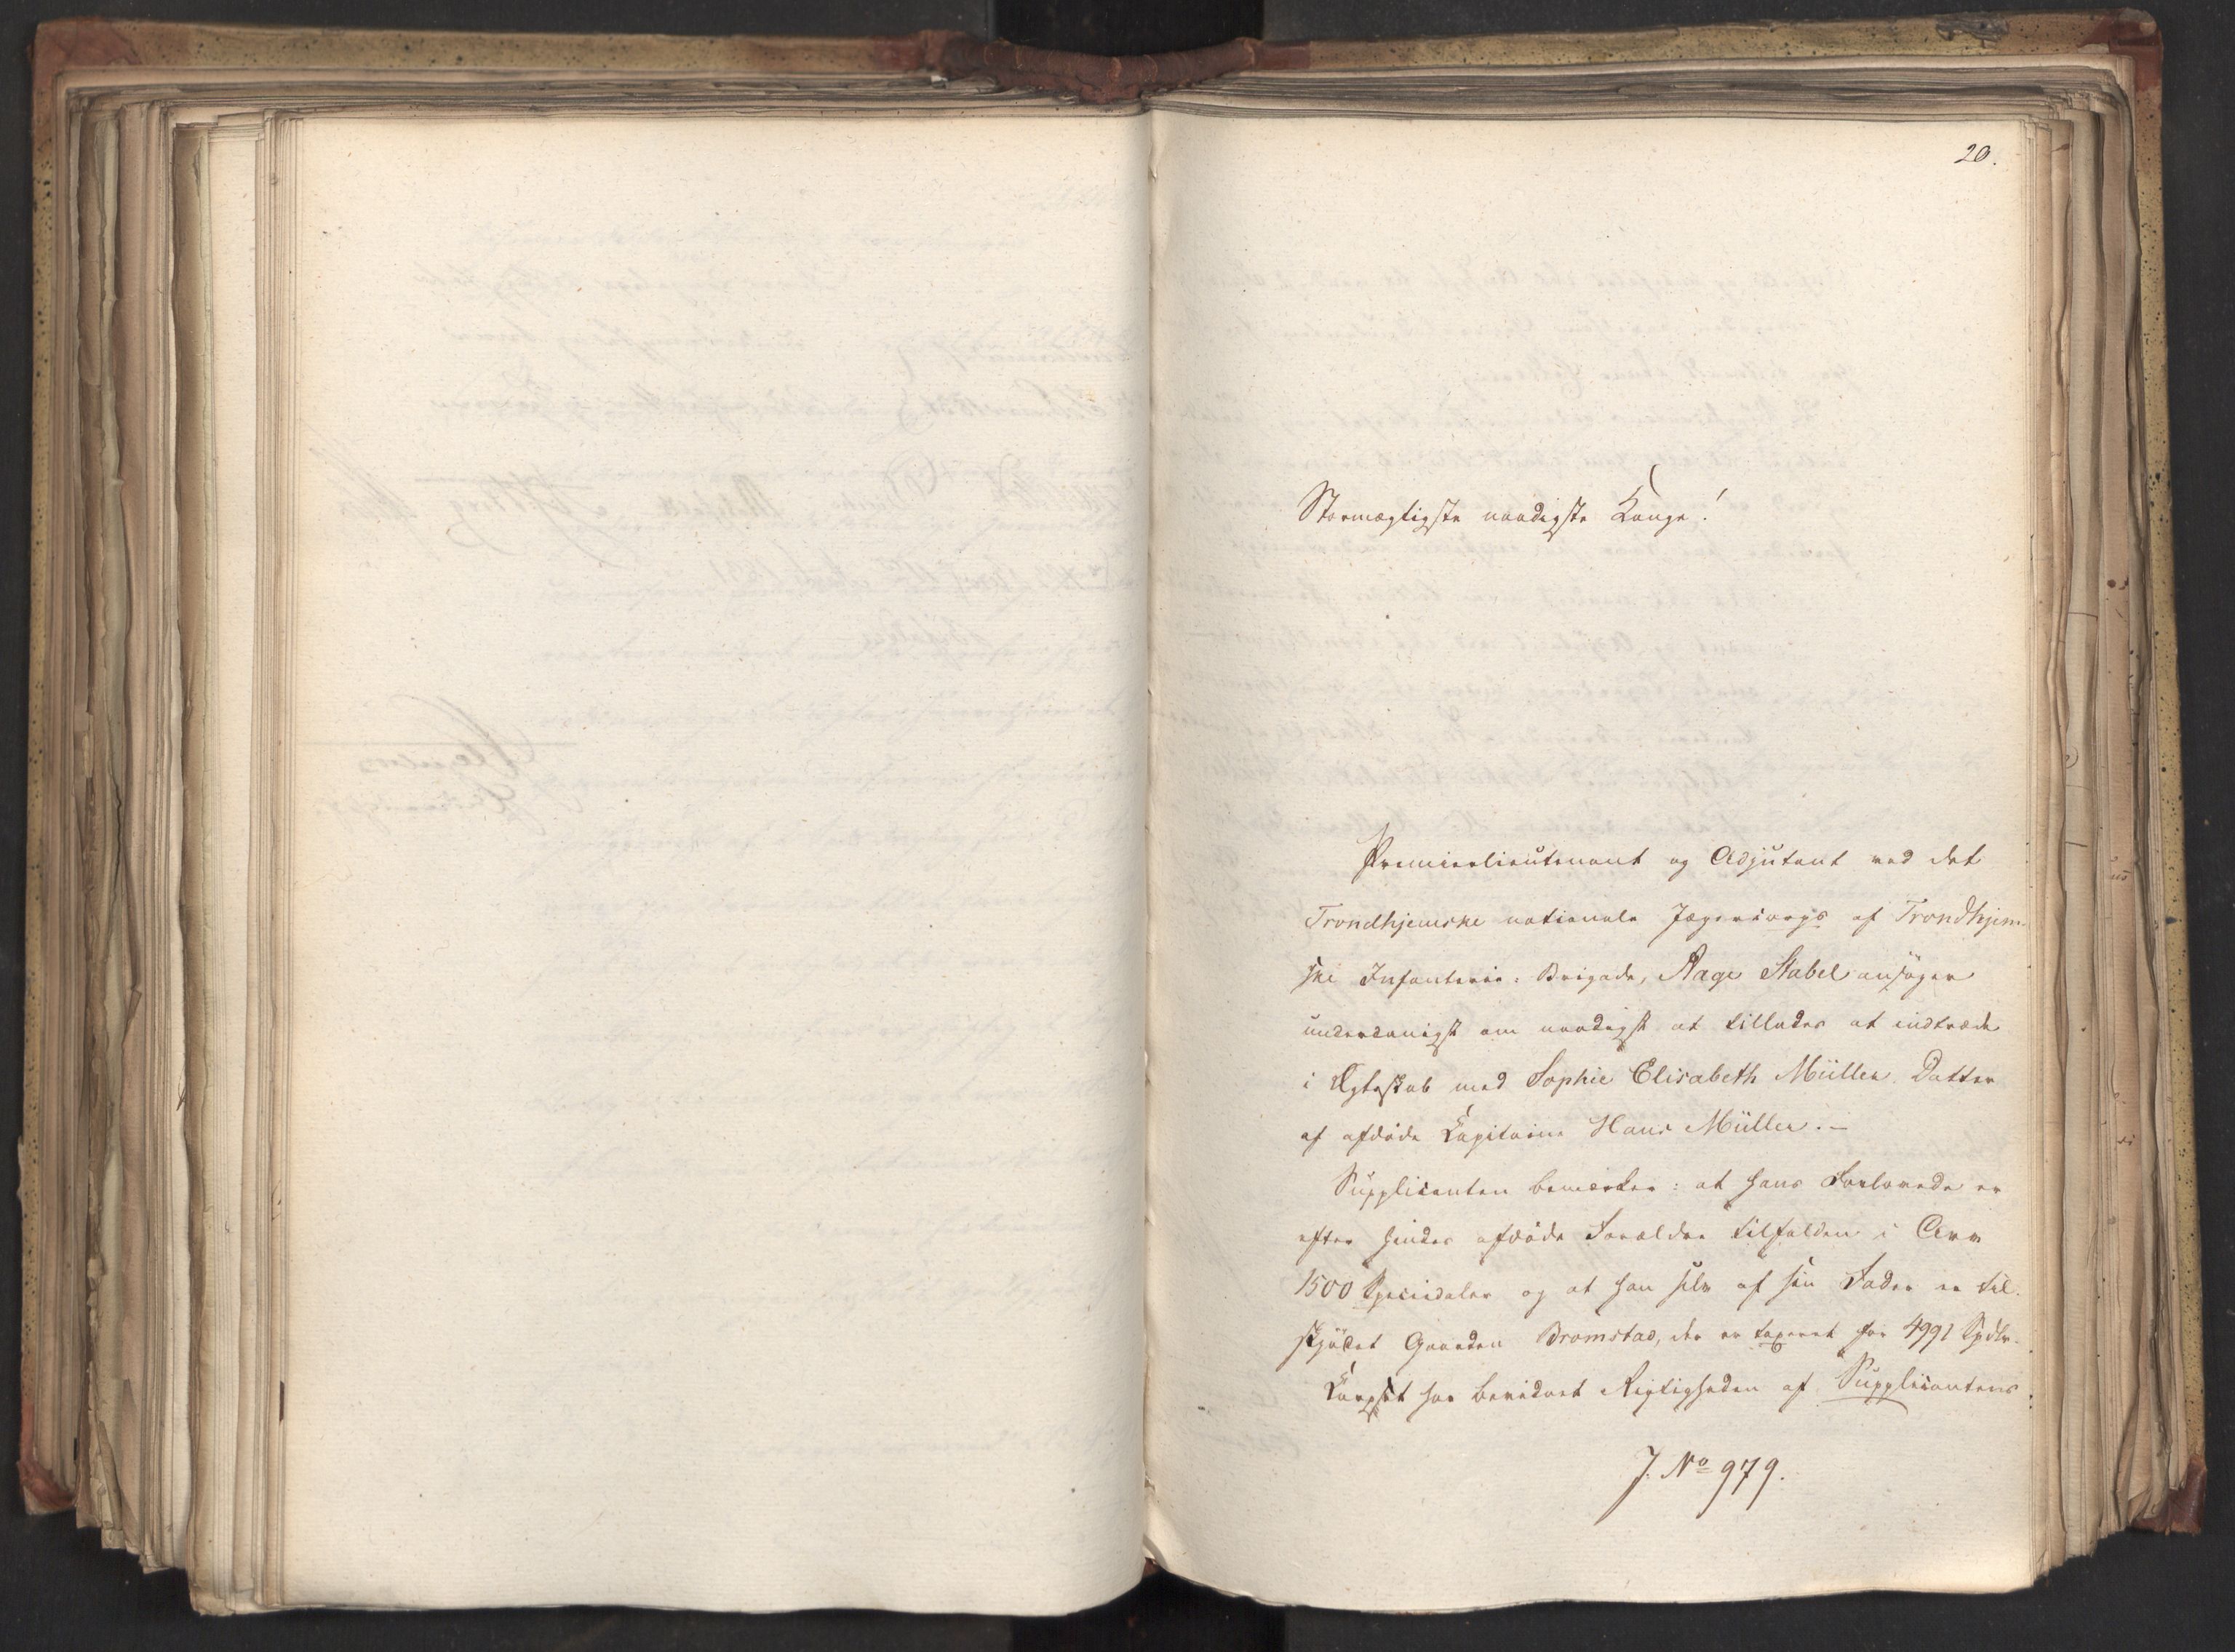 20.
Stormægtigste naadigste Konge!
Premierlieutenant og Adjutant ved det
Trondhjemske nationale Jægercorps af Trondhjem-
ske Infanterie-Brigade, Aage Stabel ansøger
underdanigst om naadigst at tillades at indtræde
i Ægteskab med Sophie Elisabeth Müller, Datter
af afdøde Kapitaine Hans Müller. –
Supplicanten bemærker: at hans Forlovede er
efter hendes afdøde Forældre tilfalden i Arv
1500 Speciedaler og at han selv af sin Fader er til-
skjödet Gaarden Bromstad, der er taxeret for 4991 Spdlr.
Korpset har bevidnet Rigtigheden af Supplicantens
J. No 979.